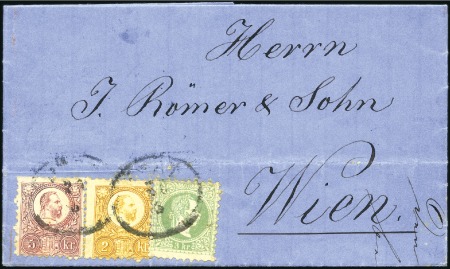 Herrn
J. Römer & Sohn
Wien.
5 kr
2 kr
3 kr